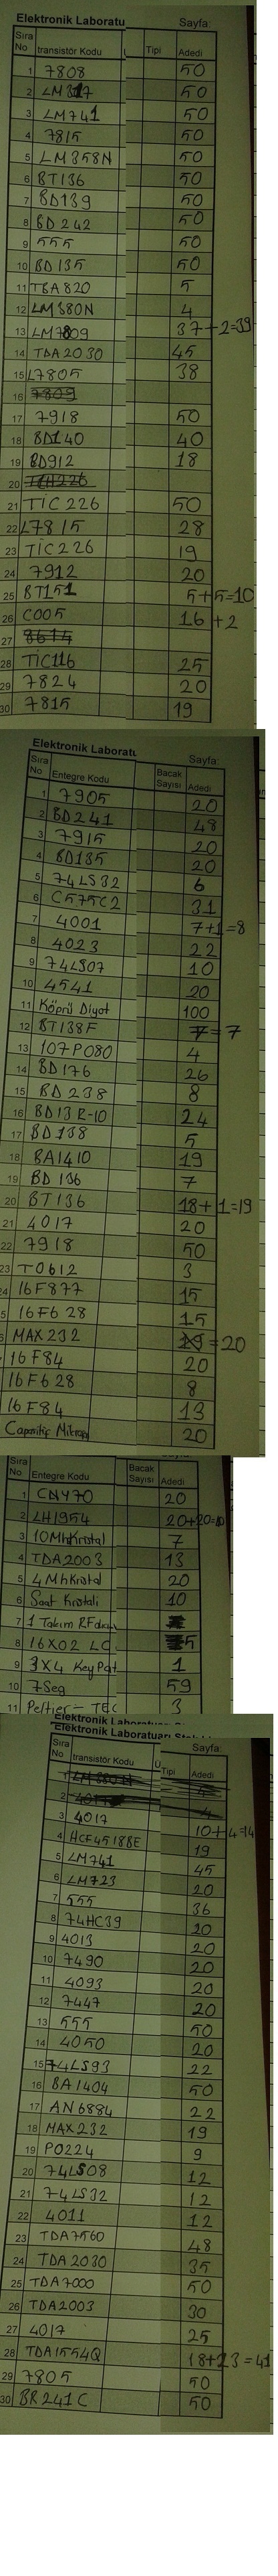 Elektronik Laboratu Sayfa:
Sıra No transistör Kodu Tipi Adedi
1 7808 50
2 LM317 50
3 LM741 50
4 7815 50
5 LM358N 50
6 BT136 50
7 BD139 50
8 BD242 50
9 555 50
10 BD135 50
11 TBA820 5
12 LM380N 4
13 LM7809 37+2=39
14 TDA2030 45
15 L7805 38
16 7809
17 7918 50
18 BD140 40
19 BD912 18
20
21 TIC226 50
22 L7815 28
23 TIC226 19
24 7912 20
25 BT151 5+5=10
26 C005 16+2
27 8614
28 TIC116 25
29 7824 20
30 7815 19
Elektronik Laboratu Sayfa:
Sıra No Entegre Kodu Bacak Sayısı Adedi
1 7905 20
2 BD241 48
3 7915 20
4 BD135 20
5 74LS32 6
6 C575C2 31
7 4001 7+1=8
8 4023 22
9 74LS07 10
10 4541 20
11 Köprü Diyot 100
12 BT138F 7=7
13 107P080 4
14 BD176 26
15 BD238 8
16 BD13R-10 24
17 BD138 5
18 BA1410 19
19 BD136 7
20 BT136 18+1=19
21 4017 20
22 7918 50
23 T0612 3
24 16F877 15
5 16F628 15
MAX232 =20
16F84 20
16F628 8
16F84 13
Capasitif Mikrop 20
Sıra No Entegre Kodu Bacak Sayısı Adedi
1 CNY70 20
2 LH1954 20+20=40
3 10MhKristal 7
4 TDA2003 13
5 4MhKristal 20
6 Saat Kristali 10
7 1 Takım RF
8 16X02 LC 5
9 3X4 KeyPat 1
10 7Seg 59
11 Peltier-TEC 3
Elektronik Laboratu
Elektronik Laboratuarı Sayfa:
Sıra No transistör Kodu Tipi Adedi
1 LM380N
2 4
3 4017 10+4=14
4 HCF4518BE 19
5 LM741 45
6 LM723 20
7 555 36
8 74HC39 20
9 4013 20
10 7490 20
11 4093 20
12 7447 20
13 555 50
14 4050 20
15 74LS93 22
16 BA1404 50
17 AN6884 22
18 MAX232 19
19 PO224 9
20 74LS08 12
21 74LS32 12
22 4011 12
23 TDA7560 48
24 TDA2030 35
25 TDA7000 50
26 TDA2003 30
27 4017 25
28 TDA1554Q 18+23=41
29 7805 50
30 BR241C 50